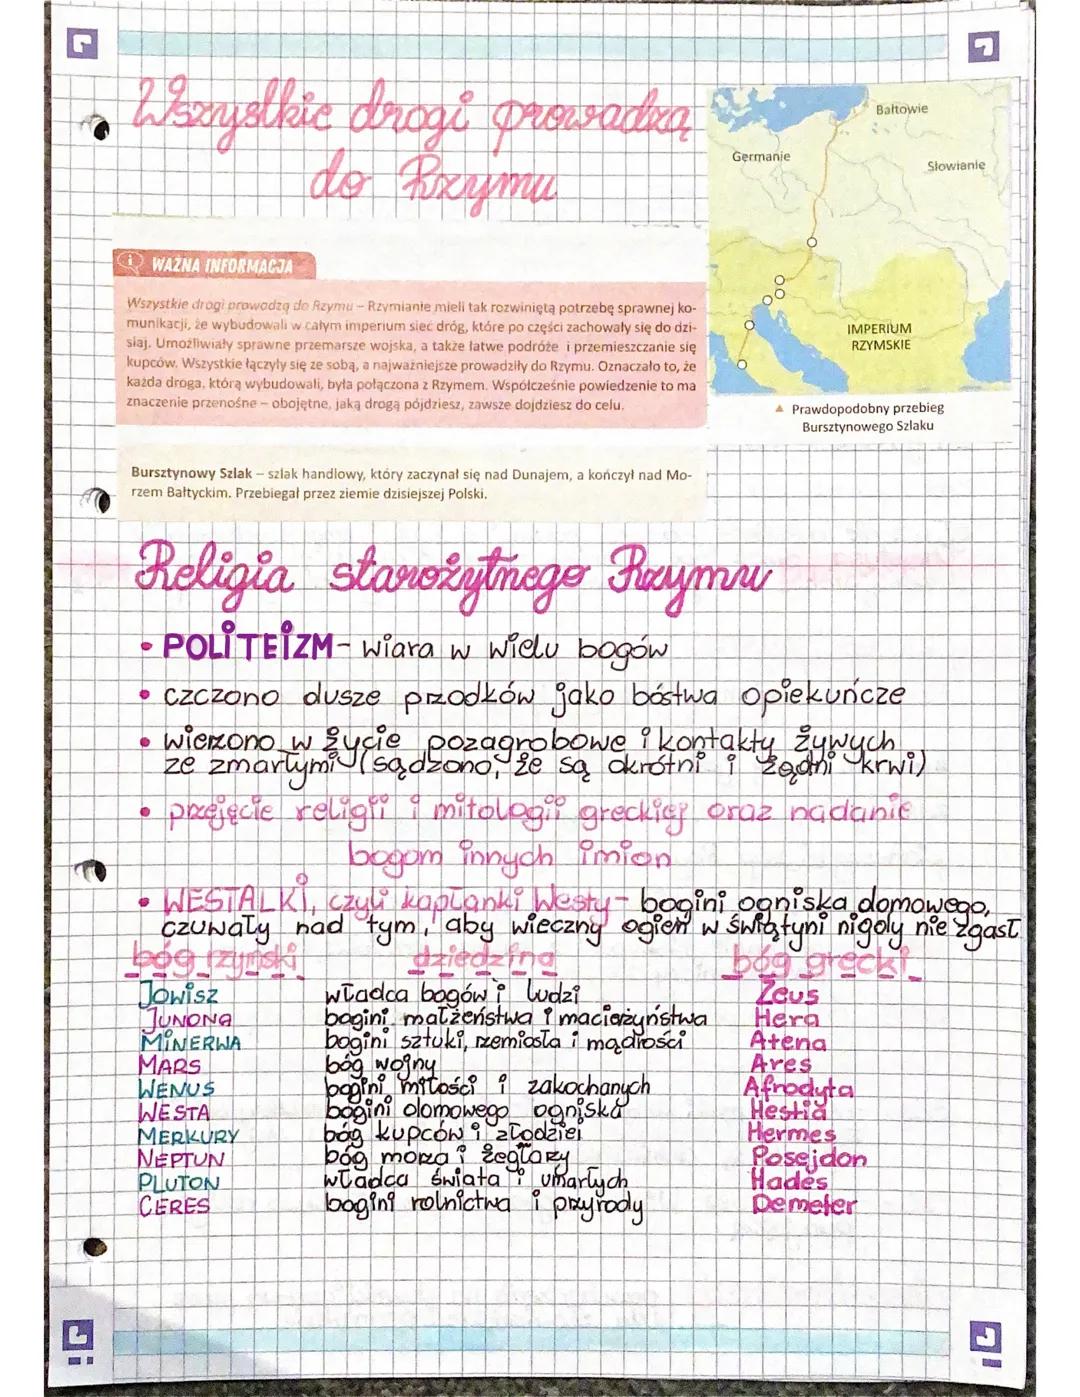 Wszystkie drogi prowadzą
do Rzymu
Bałtowie
Germanie
Słowianie
IMPERIUM
RZYMSKIE
▲ Prawdopodobny przebieg
Bursztynowego Szlaku
WAŻNA INFORMACJA
Wszystkie drogi prowadzą do Rzymu – Rzymianie mieli tak rozwiniętą potrzebę sprawnej ko-
munikacji, że wybudowali w całym imperium sieć dróg, które po części zachowały się do dzi-
siaj. Umożliwiały sprawne przemarsze wojska, a także łatwe podróże i przemieszczanie się
kupców. Wszystkie łączyły się ze sobą, a najważniejsze prowadziły do Rzymu. Oznaczało to, że
każda droga, którą wybudowali, była połączona z Rzymem. Współcześnie powiedzenie to ma
znaczenie przenośne – obojętne, jaką drogą pójdziesz, zawsze dojdziesz do celu.
Bursztynowy Szlak – szlak handlowy, który zaczynał się nad Dunajem, a kończył nad Mo-
rzem Bałtyckim. Przebiegał przez ziemie dzisiejszej Polski.
Religia starożytnego Rzymu
• POLITEIZM - wiara w wielu bogów
• czczono dusze przodków jako bóstwa opiekuńcze
• wierzono w życie pozagrobowe i kontakty żywych
ze zmarłymi (sądzono, że są okrótni i żądni krwi)
• przejęcie religii i mitologii greckiej oraz nadanie
bogom innych imion
• WESTALKI, czyli kapłanki Westy - bogini ogniska domowego,
czuwały nad tym, aby wieczny ogień w świątyni nigdy nie zgasł
bóg rzymski dziedzina bóg grecki
JOWISZ władca bogów i ludzi Zeus
JUNONA bogini małżeństwa i macierzyństwa Hera
MINERWA bogini sztuki, rzemiosła i mądrości Atena
MARS bóg wojny Ares
WENUS bogini miłości i zakochanych Afrodyta
WESTA bogini domowego ogniska Hestia
MERKURY bóg kupców i złodziei Hermes
NEPTUN bóg morza i żeglarzy Posejdon
PLUTON władca świata i umarłych Hades
CERES bogini rolnictwa i przyrody Demeter